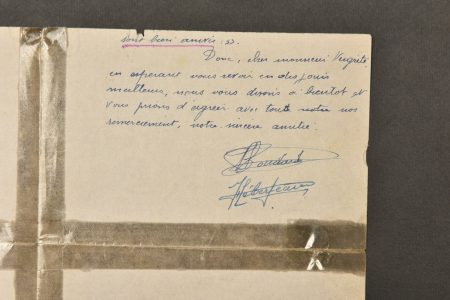 sont bien arrivés. »
Donc, cher monsieur
en espérant vous revoir en des jours
meilleurs, nous vous disons à bientot et
vous prions d'agréer avec toute notre nos
remerciement, notre sincère amitié.